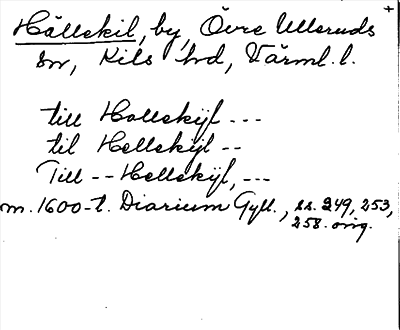 +
Hällekil, by, Övre Ulleruds
sn, Kils hd, Värml. l.
till Hollekijl ---
til Hellekijl --
Till -- Hellekijl, ---
m. 1600-t. Diarium Gyll., ss. 249, 253,
258. orig.